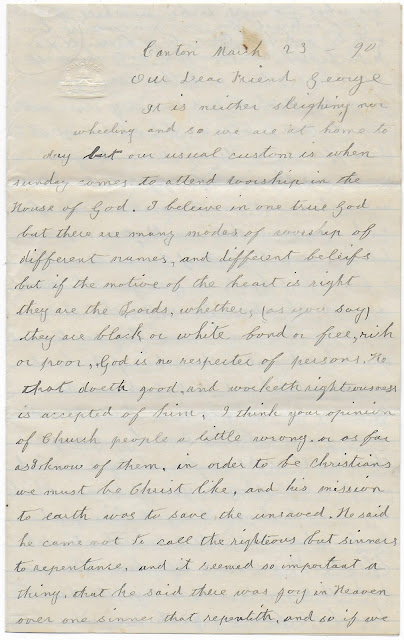 Canton March 23 - 90
Our Dear Friend George
It is neither sleighing nor
wheeling and so we are at home to
day but our usual custom is when
sunday comes to attend worship in the
House of God. I beleive in one true God
but there are many modes of worship of
different names, and different beleifs
but if the motive of the heart is right
they are the Lords, whether, (as you say)
they are black or white bond or free, rich
or poor, God is no respecter of persons. He
that doeth good, and worketh righteousness
is accepted of him, I think your opinion
of Church people a little wrong. or as far
as I know of them, in order to be Christians
we must be Christ like, and his mission
to earth was to save the unsaved. He said
he came not to call the righteous but sinners
to repentance, and it seemed so important a
thing, that he said there was joy in Heaven
over one sinner that repenteth, and so if we